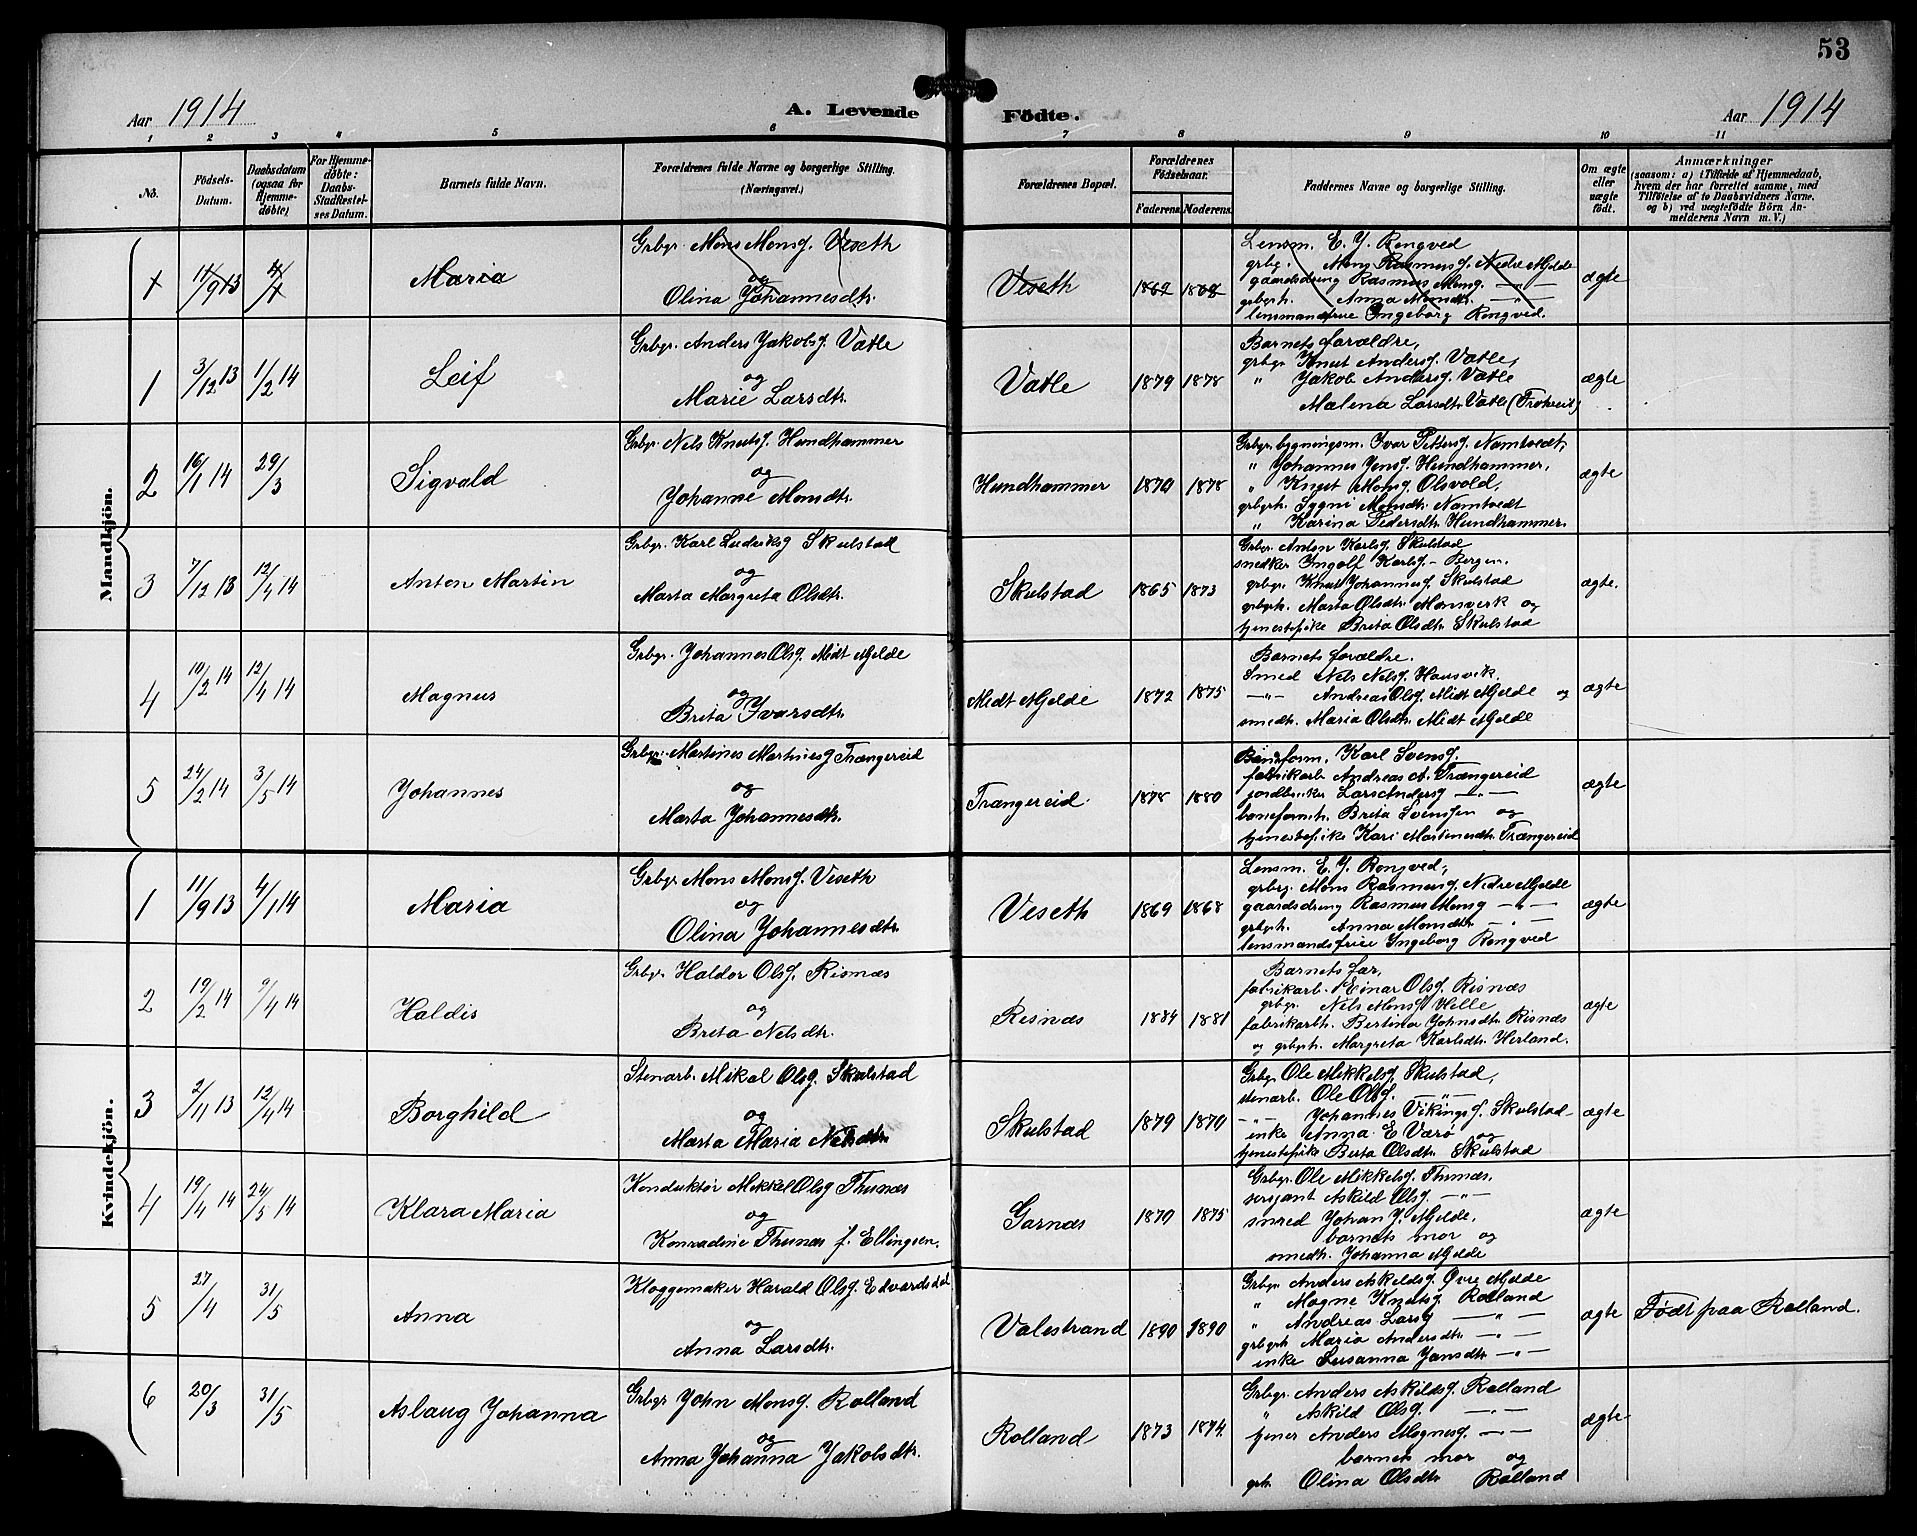 53
Aar 1914 A. Levende Födte. Aar 1914
1 2 3 4 5 6 7 8 9 10 11
No.
Födsels-Datum.
Daabsdatum (ogsaa for Hjemmedöbte)
For Hjemmedöbte: Daabs-Stadfæstelses Datum.
Barnets fulde Navn.
Forældrenes fulde Navne og borgerlige Stilling.
(Næringsvei.)
Forældrenes Bopæl.
Forældrenes Födselsaar.
Faderens. Moderens.
Faddernes Navne og borgerlige Stilling.
Om ægte eller uægte født.
Anmærkninger
(saasom: a) i Tilfælde af Hjemmedaab,
hvem der har forrettet samme, med
Tilföielse af to Daabsvidners Navne,
og b) ved uægtefödte Börn Anmelderens Navn m. V.)
Mandkjön.
1 11/9 13 4/1 Maria
Grbgr. Mons Monsg. Veseth
og
Olina Johannesdtr.
Veseth 1862 1868
Lensm. E. J. Rongved
grbg. Mons Rasmusg. Nedre Mjelde
gaardsdreng Rasmus Monsg. —"—
grbgrh. Anna Monsdtr. —"—
lensmandsfrue Ingeborg Rongved.
ægte
1 3/12 13 1/2 14 Leif
Grbgr. Anders Jakobsg. Vatle
og
Marie Larsdtr.
Vatle 1879 1878
Barnets forældre,
grbgr Knut Andersg. Vatle,
" Jakob Andersg. Vatle
Malena Larsdtr. Vatle
ægte
2 16/1 14 29/3 Sigvald
Grbgr. Nels Knutsg. Hundhammer
og
Johanne Monsdtr.
Hundhammer 1870 1878
Grbgr. bygningsm. Ivar Pettersg. Namtvedt,
" Johannes Jensg. Hundhammer,
" Knut Monsg. Olsvold,
grbgrh. Sygni Monsdtr. Namtvedt
" Karina Pedersdtr. Hundhammer.
ægte
3 7/12 13 12/4 14 Anton Martin
Grbgr. Karl Ludviksg Skulstad
og
Marta Margreta Olsdtr.
Skulstad 1865 1873
Grbgr. Anton Karlsg. Skulstad
snedker Ingolf Karlsg. - Bergen.
grbgr. Knut Johannesg. Skulstad
grbgrh. Marta Olsdtr. Monsverk og
tjenestepike Breta Olsdtr. Skulstad
ægte.
4 19/2 14 12/4 14 Magnus
Grbgr. Johannes Olsg. Midt Mjelde
og
Brita Ivarsdtr.
Midt Mjelde 1872 1875
Barnets forældre.
Smed Nels Nelsg. Hausvik,
—"— Andreas Olsg. Midt Mjelde og
smedh. Maria Olsdtr. Midt Mjelde
ægte
5 24/2 14 3/5 14 Johannes
Grbgr. Martines Martinesg Trængereid
og
Marta Johannesdtr.
Trængereid 1878 1880
Baneform. Karl Svensg.
fabrikarb Andreas A. Trængereid
jordbruker Lars Andersg —"—
baneformh. Breta Svensgen og
tjenestepike Kari Martinesdtr. Trængereid
ægte
Kvindekjön.
1 11/9 13 4/1 14 Maria
Grbgr Mons Monsg. Veseth
og
Olina Johannesdtr.
Veseth 1869 1868
Lensm. E. J. Rongved,
grbrg. Mons Rasmusg. Nedre Mjelde
gaardsdreng Rasmus Monsg —"—
grbgrh. Anna Monsdtr. —"—
lensmandsfrue Ingeborg Rongved
ægte
2 19/2 14 9/4 14 Haldis
Grbgr Haldor Olsg. Risnæs
og
Breta Nelsdtr.
Risnæs 1884 1881
Barnets far,
fabrikarb. Einar Olsg. Risnæs
grbgr. Nels Monsg Helle
fabrikarbh. Bertina Johnsdtr. Risnæs
og grbgrh. Margreta Karlsdtr. Herland.
ægte
3 2/11 13 12/4 14 Borghild
Stenarb. Mikal Olsg. Skulstad
og
Marta Maria Nelsdtr.
Skulstad 1879 1870
Grbgr Ole Mikkelsg. Skulstad,
stenarb. Ole Olsg. —"—
—"— Johannes Vikingsg. Skulstad
enke Anna E Varø og
tjenestepike Berta Olsdtr. Skulstad
ægte
4 19/4 14 24/5 14 Klara Maria
Konduktør Mikkel Olsg Thunæs
og
Konradine Thunæs f. Ellingsen.
Garnæs 1870 1875
Grbgr. Ole Mikkelsg. Thunæs.
sersjant Askild Olsg. —"—
smed Johan J. Mjelde,
barnets mor og
smedh. Johanna Mjelde
ægte
5 27/4 31/5 Anna
Kloggemaker Harald Olsg. Edvardsdal
og
Anna Larsdtr.
Valestrand 1890 1890
Grbgr. Anders Askildsg. Øvre Mjelde
" Magne Knutsg. Rolland
" Andreas Larsg —"—
grbgrh Maria Andersdtr. —"—
enke Susanna Jansdtr. —"—
ægte Født paa Rolland.
6 20/3 31/5 Aslaug Johanna
Grbgr John Monsg. Rolland
og
Anna Johanna Jakobsdtr.
Rolland 1873 1874
Grbgr. Anders Askildsg. Rolland
" Askild Olsg. —"—
tjener Anders Magnesg. —"—
barnets mor og
grh. Olina Olsdtr Rolland
ægte